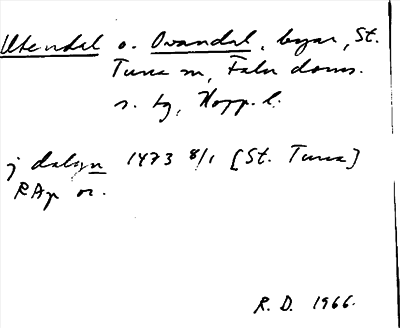 Utendal o. Ovandal, byar, St.
Tuna sn, Falu doms.
s. tg, Kopp. l.
j dalzn 1473 8/1 [St. Tuna]
RAp or.
R. D. 1966.